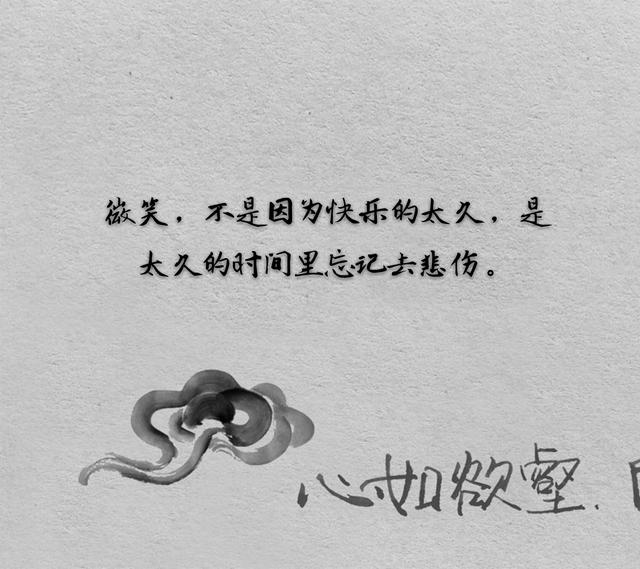 微笑，不是因为快乐的太久，是
太久的时间里忘记去悲伤。
心如欲壑.